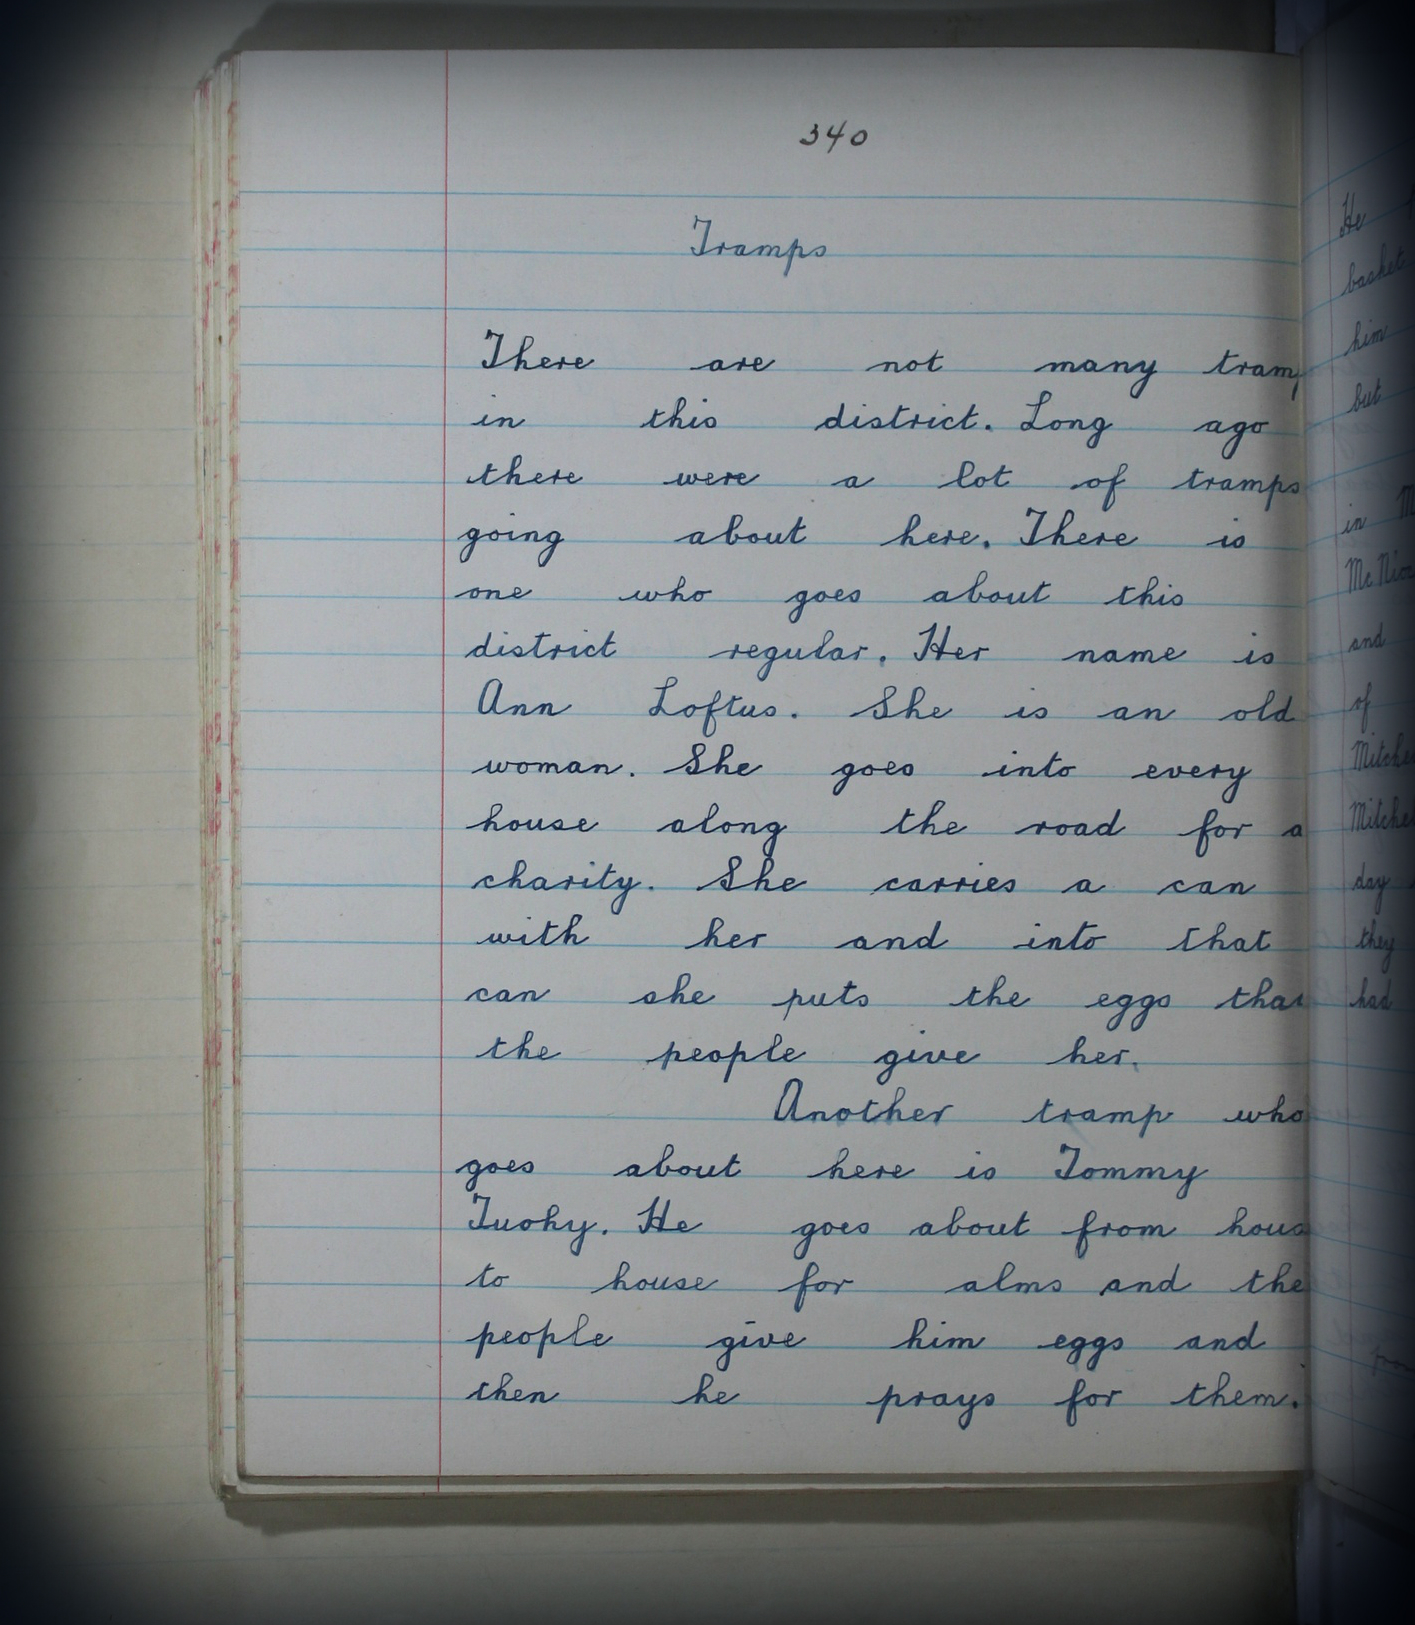 340
Tramps
There are not many tram
in this district. Long ago
there were a lot of tramps
going about here. There is
one who goes about this
district regular. Her name is
Ann Loftus. She is an old
woman. She goes into every
house along the road for a
charity. She carries a can
with her and into that
can she puts the eggs that
the people give her.
Another tramp who
goes about here is Tommy
Tuohy. He goes about from hous
to house for alms and the
people give him eggs and
then he prays for them.
He
basket
him
but
in
and
of
day
they
had